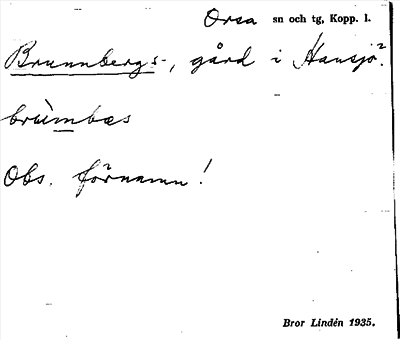 Orsa sn och tg, Kopp. l.
Brunnbergs-, gård i Hansjö?
brùmbæs
Obs. förnamn!
Bror Lindén 1935.